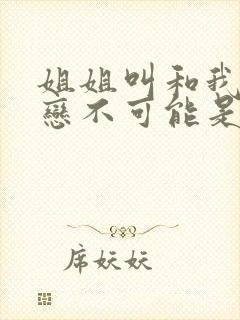 姐姐叫和我
戀不可能是
席妖妖